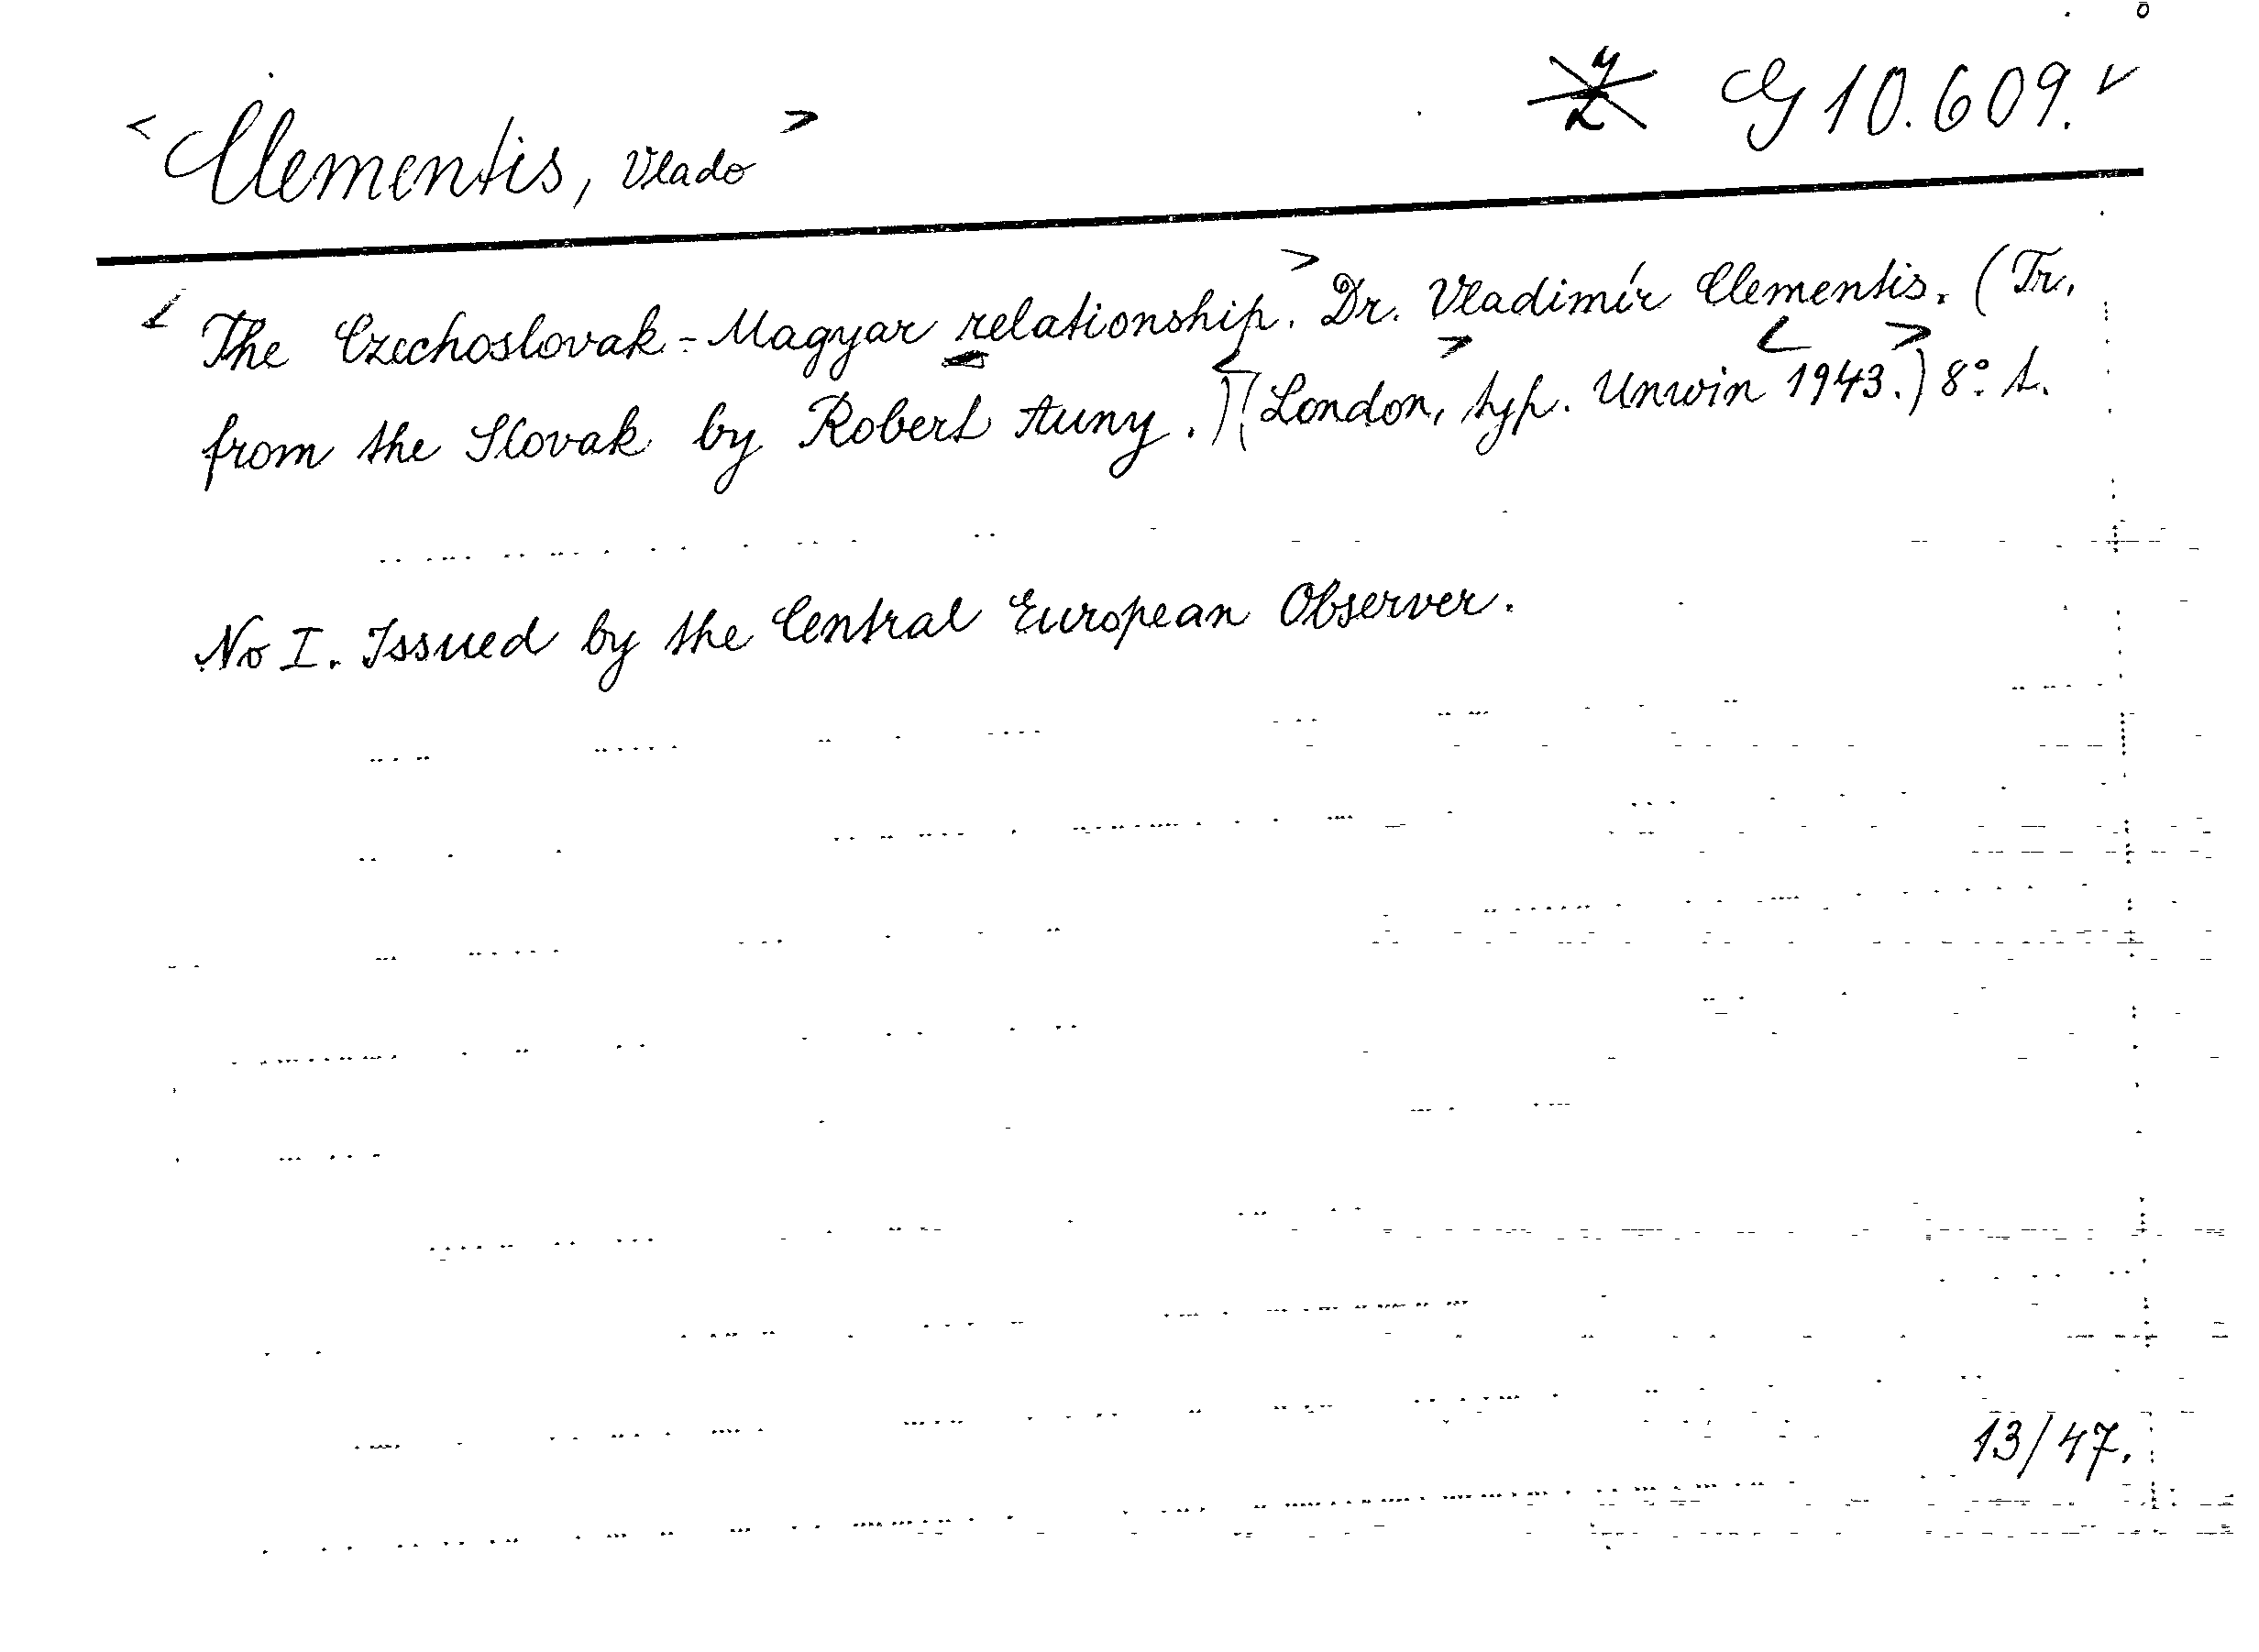 G 10.609.
<Clementis, Vlado>
<The Czechoslovak-Magyar relationship.> Dr. Vladimír Clementis. (Tr.
from the Slovak by Robert Auny.) <(London,> typ. Unwin <1943.>) 8° t.
No I. Issued by the Central European Observer.
13/47.